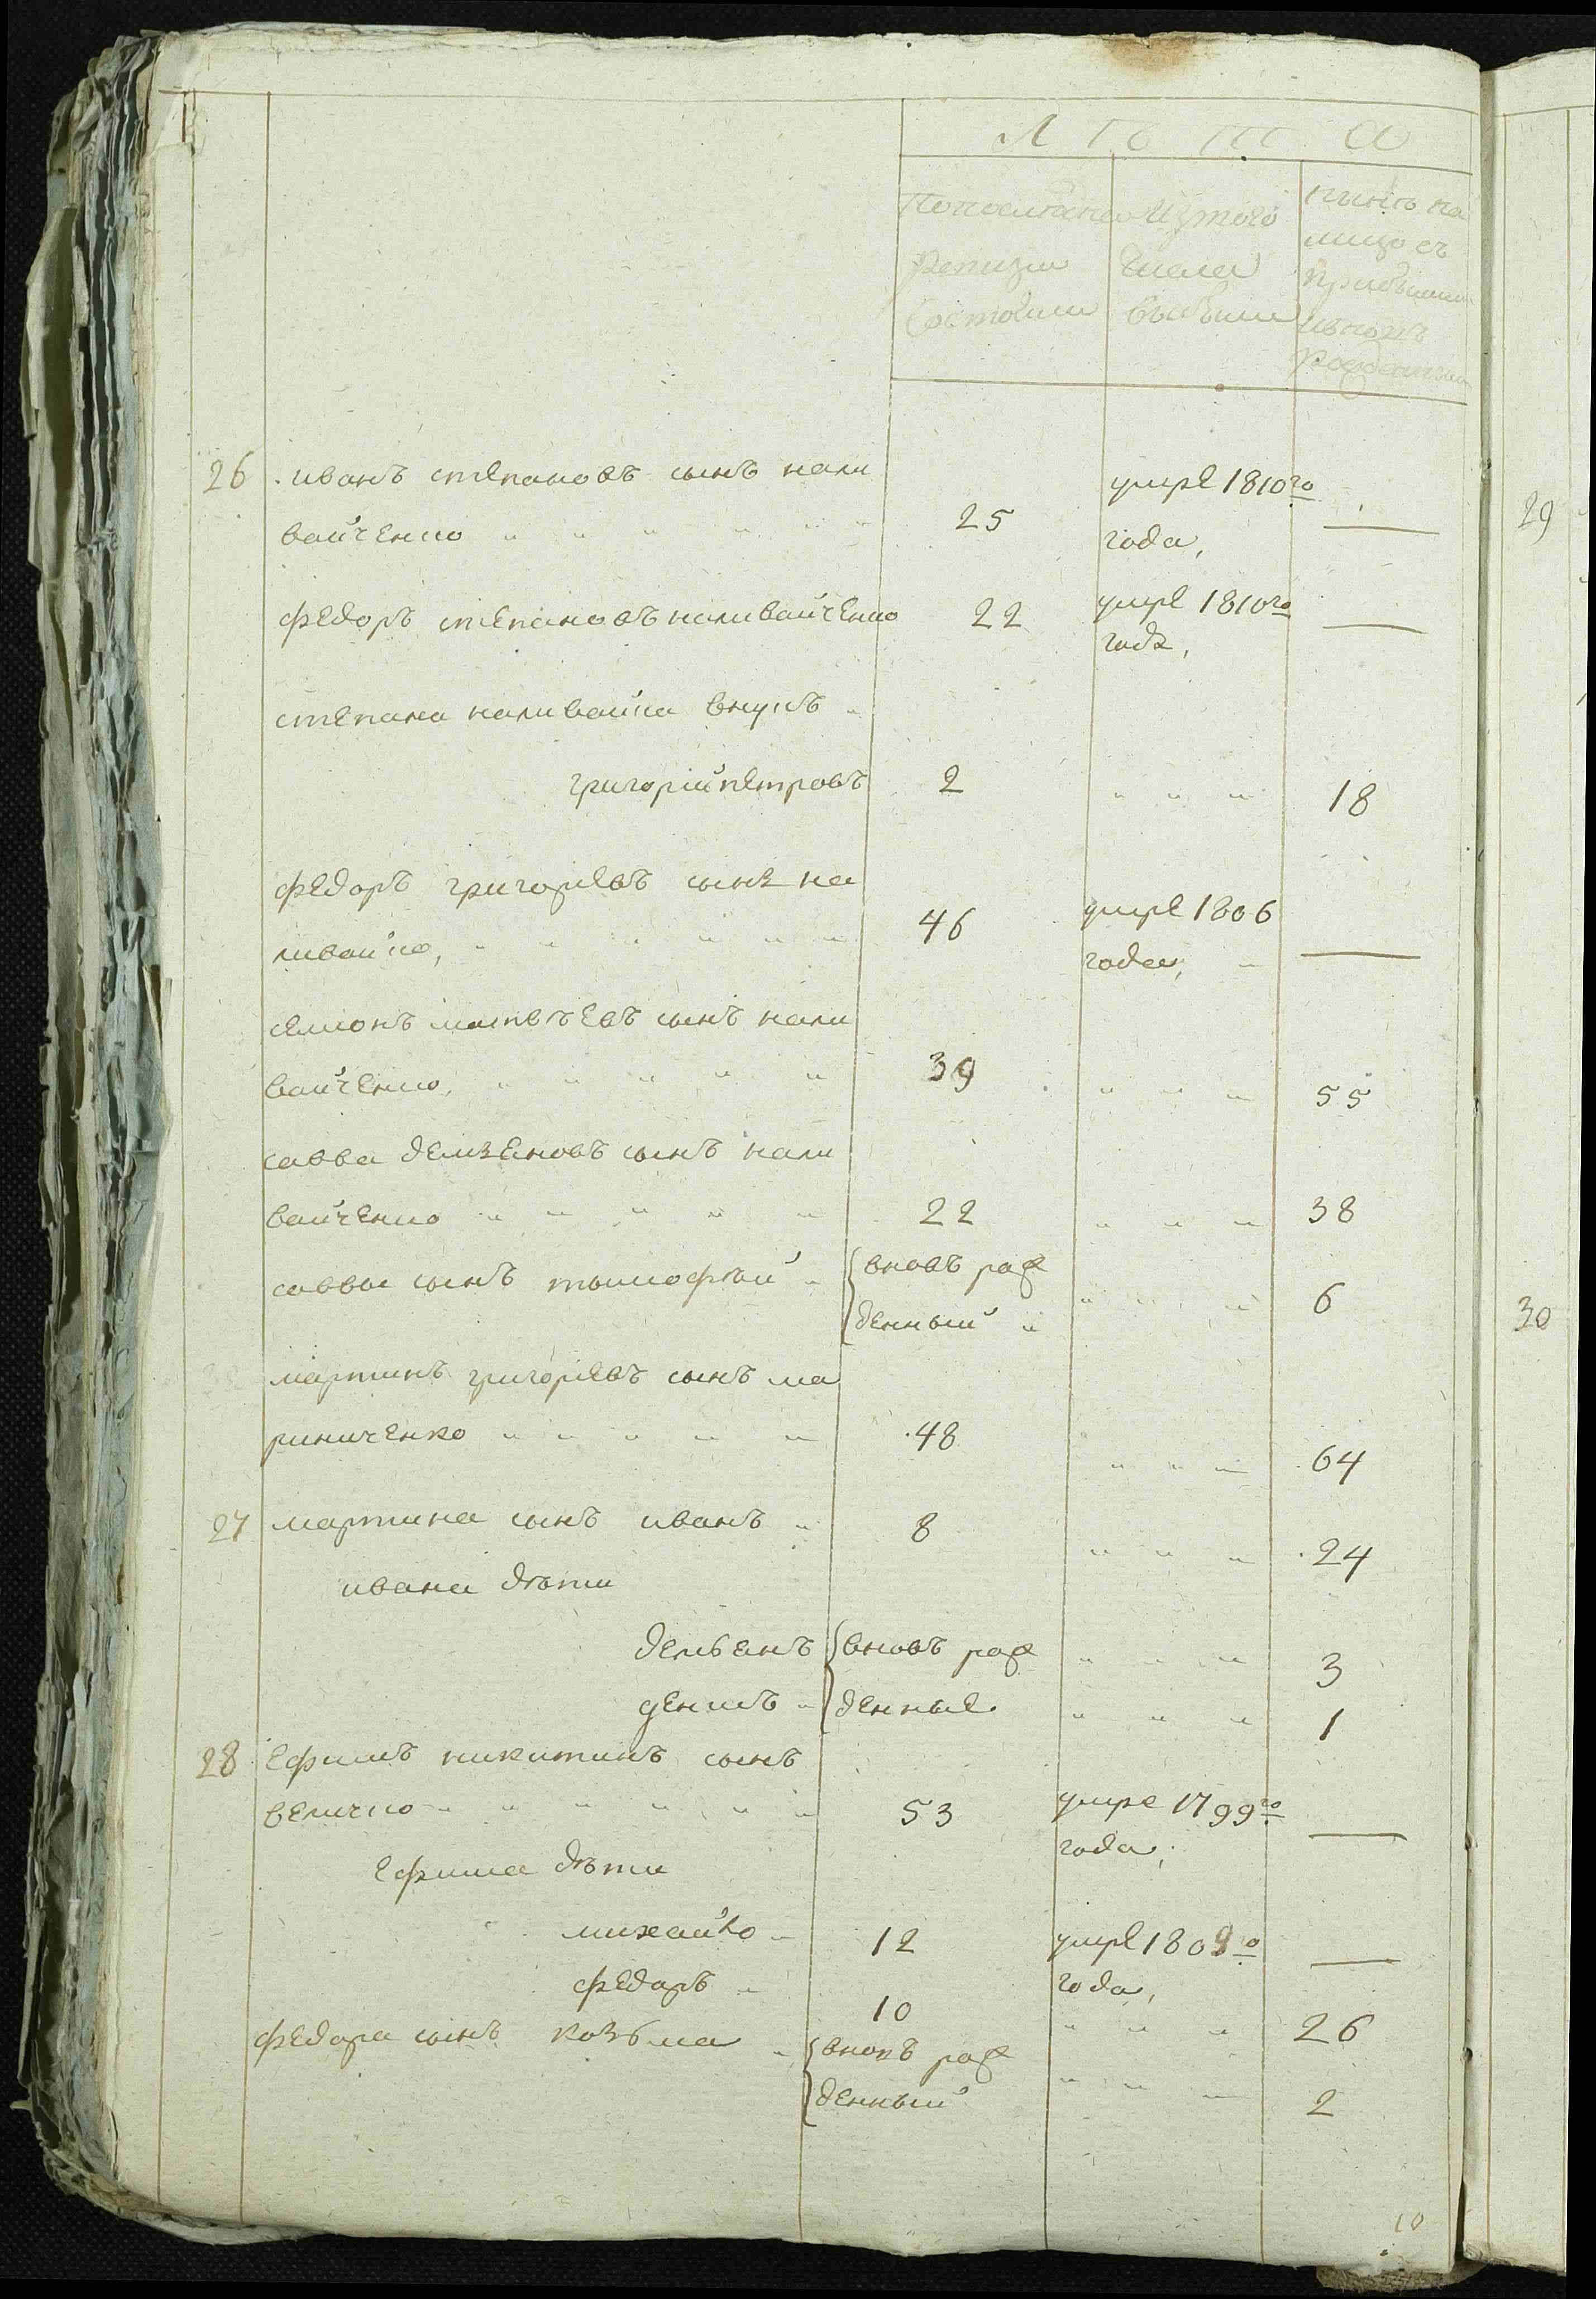 ЛѢТА
По последней
Ревизіи
Состояли
Изтого
числа
выбыли
нынѣ на
лицо съ
прибылыми
и вновь
Рожденными
26 иванъ степановъ сынъ нали
вайченко " " " " " " 25 умре 1810го —
года,
федоръ степановъ наливайченко 22 умре 1810го —
года,
степана наливайка внукъ "
григорій петровъ 2 " " " 18
федоръ григорієвъ сынъ на
ливайко, " " " " " " 46 умре 1806 —
года, "
семионъ матвѣевъ сынъ нали
вайченко, " " " " " 39 " " " 55
савва демяновъ сынъ нали
вайченко " " " " " 22 " " " 38
саввы сынъ тымофѣй " вновъ раж
денный " " " " 6
мартинъ григорієвъ сынъ ма
риниченко " " " " " 48 " " " 64
27 мартина сынъ иванъ " 8 " " " 24
ивана дѣти
демьянъ вновъ раж " " " 3
денисъ " денные. " " " 1
28 ефимъ никитинъ сынъ
величко " " " " " " 53 умре 1799го —
года,
ефима дѣти
михайло " 12 умре 1809го —
года,
федоръ " 10 " " " 26
федора сынъ козьма " вновъ раж
денный " " " 2
10
29
30